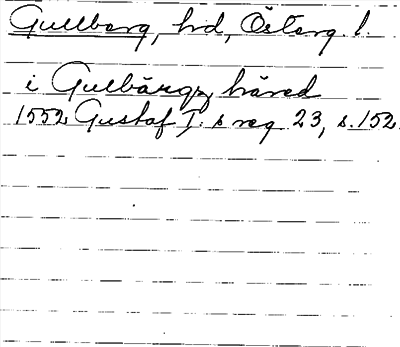 Gullberg, hd, Österg. l.
i Gulbärgz häred
1552 Gustaf I:s reg 23, s. 152